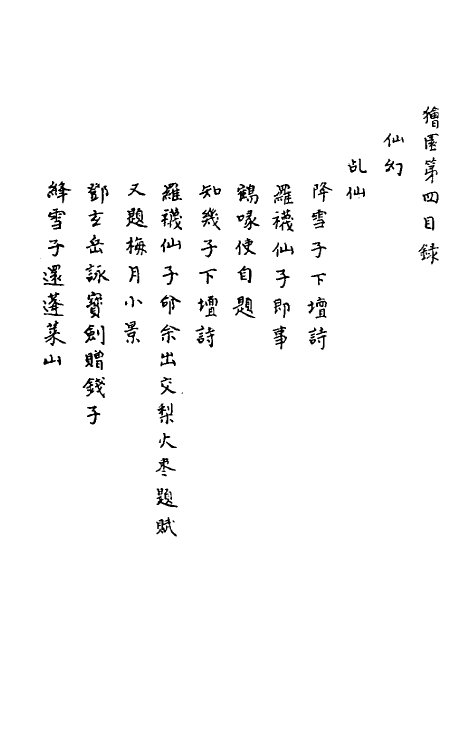 獪園第四目録
仙幻
乩仙
降雪子下壇詩
羅襪仙子即事
鶴喙使自題
知幾子下壇詩
羅襪仙子命余出交梨火枣題賦
又題梅月小景
鄧玄岳詠寳劍贈錢子
絳雪子還蓬萊山